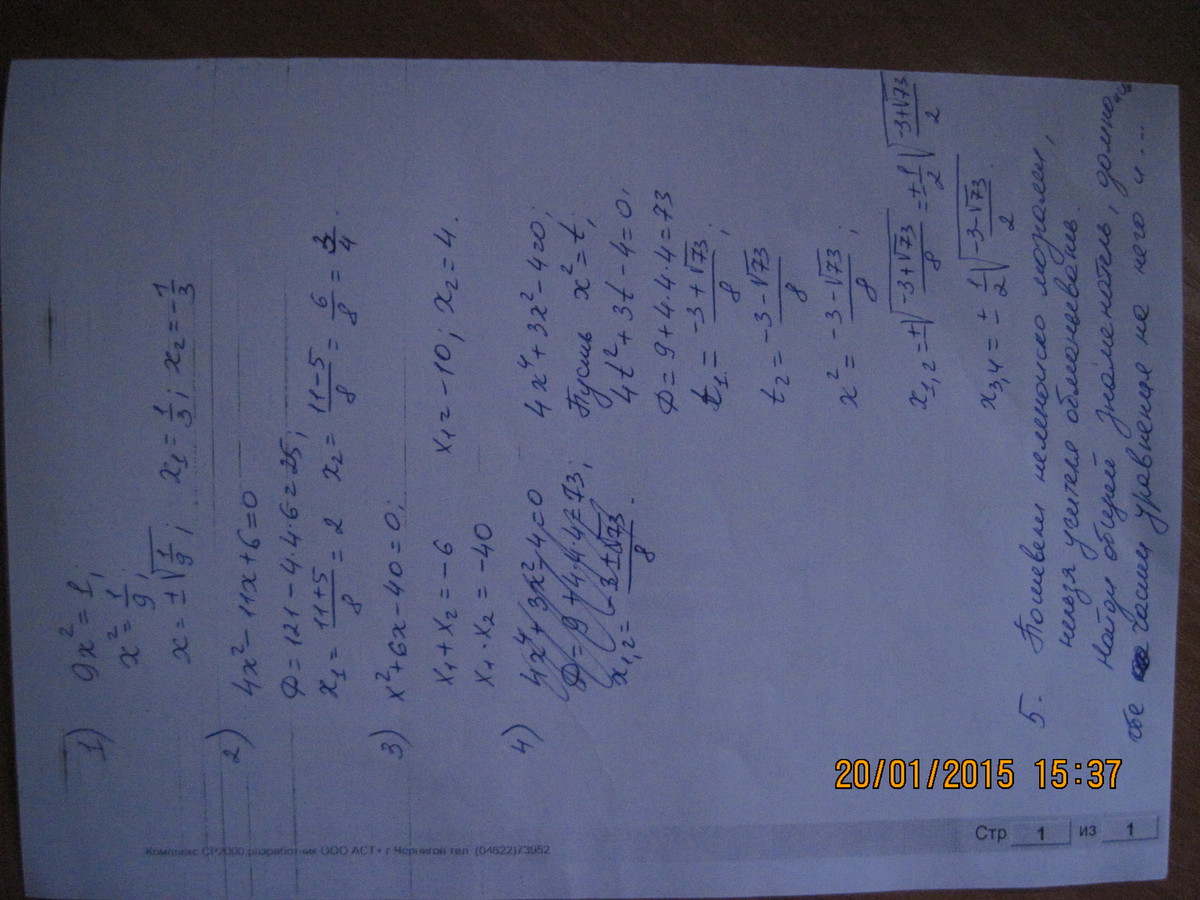 1) 9x² = 1;
x² = 1/9;
x = ±√(1/9); x₁ = 1/3; x₂ = -1/3
2) 4x² - 11x + 6 = 0
D = 121 - 4·4·6 = 25;
x₁ = (11+5)/8 = 2 x₂ = (11-5)/8 = 6/8 = 3/4.
3) x² + 6x - 40 = 0;
x₁ + x₂ = -6
x₁ · x₂ = -40 x₁ = -10; x₂ = 4.
4) 4x⁴ + 3x² - 4 = 0
D = 9 + 4·4·4 = 73;
x₁,₂ = (-3 ± √73)/8.
4x⁴ + 3x² - 4 = 0;
Пусть x² = t;
4t² + 3t - 4 = 0;
D = 9 + 4·4·4 = 73
t₁ = (-3 + √73)/8;
t₂ = (-3 - √73)/8
x² = (-3 - √73)/8;
x₁,₂ = ±√((-3+√73)/8) = ±1/2 √((-3+√73)/2)
x₃,₄ = ±1/2 √((-3-√73)/2).
5. Пошевели немножко мозгами,
нельзя учителя обманывать.
Найди общий знаменатель, домножь
обе части уравнения на него и ...
20/01/2015 15:37
Стр 1 из 1
Комплекс СР2000 разработчик ООО АСТ+ г Чернигов тел. (04622)73952